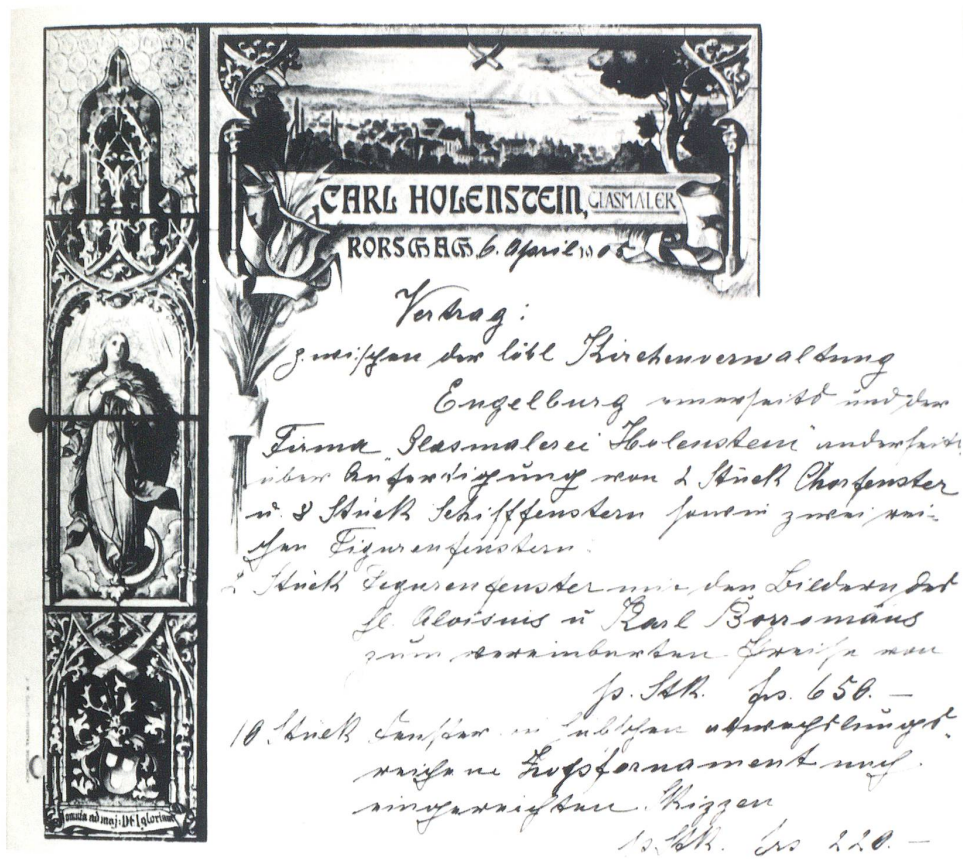 CARL HOLENSTEIN, GLASMALER
RORSCHACH 6. April 190
Vertrag:
zwischen der löbl Kirchenverwaltung
Engelburg einerseits und der
Firma "Glasmalerei Holenstein" anderseits
über Anfertigung von 2 Stück Chorfenster
u. 8 Stück Schifffenstern sowie zwei rei-
chen Figurenfenstern.
2 Stück Figurenfenster mit den Bildern des
hl. Aloisius u Karl Borromäus
zum vereinbarten Preise von
p. Stk. frs. 650.—
10 Stück Fenster in hübschen abwechslungs-
reichem Zopfornament nach
eingereichten Skizzen
p. Stk. frs 220.—
omnia ad maj: DEI gloriam